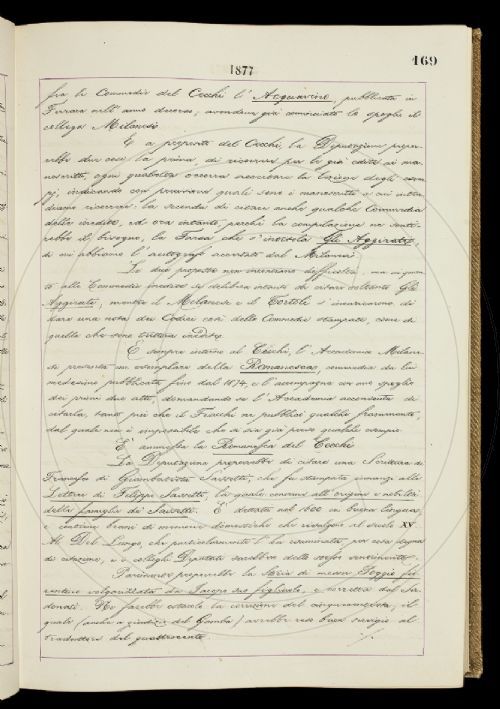 169
1877
fra le Commedie del Cecchi l'Acquavino, pubblicata in
Ferrara nell'anno decorso, avendone già cominciato lo spoglio il
collega Milanesi.
E a proposito del Cecchi, la Deputazione propor-
rebbe due cose: la prima, di ricorrere per le già edite ai ma-
noscritti, ogni qualvolta occorra accertare la lezione degli esem
pj, indicando con precisione quali sono i manoscritti a cui inten
diamo ricorrere: la seconda di citare anche qualche Commedia
delle inedite, ed ora intanto, perchè la compilazione ne senti-
rebbe il bisogno, la Farsa che s'intitola Gli Aggirati,
di cui abbiamo l'autografo accertato dal Milanesi.
Le due proposte non incontrano difficoltà, ma in quan
to alle Commedie inedite si delibera intanto di citare soltanto Gli
Aggirati, mentre il Milanesi e il Tortoli s'incaricano di
dare una nota dei Codici così delle Commedie stampate, come di
quelle che sono tuttora inedite.
E sempre intorno al Cecchi, l'Accademico Milane-
si presenta un esemplare della Romanesca, commedia da lui
medesimo pubblicata fino dal 1874, e l'accompagna con uno spoglio
dei primi due atti, domandando se l'Accademia acconsenta di
citarla, tanto più che il Fiacchi ne pubblicò qualche frammento,
dal quale non è improbabile che si sia già preso qualche esempio.
E' ammessa la Romanesca del Cecchi.
La Deputazione proporrebbe di citare una Scrittura di
Francesco di Giambatista Sassetti, che fu stampata innanzi alle
Lettere di Filippo Sassetti, la quale concerne all'origine e nobiltà
della famiglia de' Sassetti. E' dettata nel 600 in buona lingua,
e contiene brani di memorie domestiche che risalgono al secolo XV.
Al Del Lungo, che particolarmente l'ha esaminata, par essa degna
di citazione, e i colleghi Deputati sarebbero dello stesso sentimento.
Parimente proporrebbe la Storia di messer Poggio fio
rentino volgarizzata da Jacopo suo figliuolo, e corretta dal Ser
donati. Nè farebbe ostacolo la correzione del cinquecentista, il
quale (anche a giudizio del Gamba) avrebbe reso buon servigio al
traduttore del quattrocento.